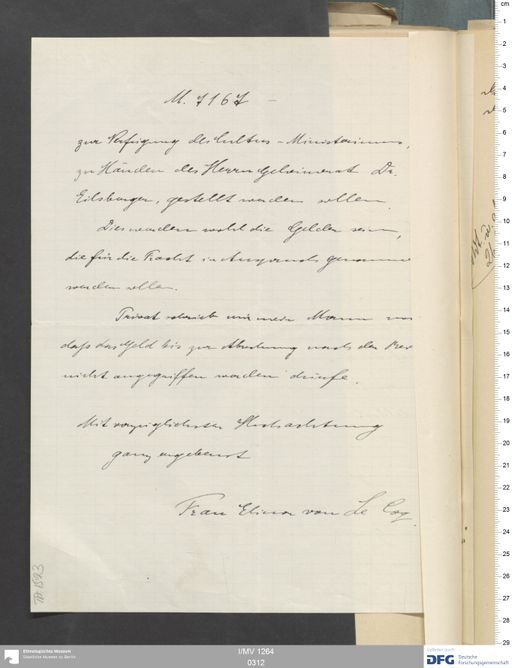 M. 7167 –
zur Verfügung des Cultus-Ministeriums,
zu Händen des Herrn Geheimerat Dr.
Eilsberger, gestellt werden sollen.
Dies werden wohl die Gelder sein,
die für die Fracht in Anspruch genommen
werden sollen.
Privat schrieb mir mein Mann
daß das Geld bis zur Abrechnung nach der
nicht angegriffen werden dürfe.
Mit vorzüglichster Hochachtung
ganz ergebenst
Frau Elinor von Le Coq.
Ethnologisches Museum
Staatliche Museen zu Berlin
I/MV 1264
0312
DFG Deutsche
Forschungsgemeinschaft
cm
1
2
3
4
5
6
7
8
9
10
11
12
13
14
15
16
17
18
19
20
21
22
23
24
25
26
27
28
29